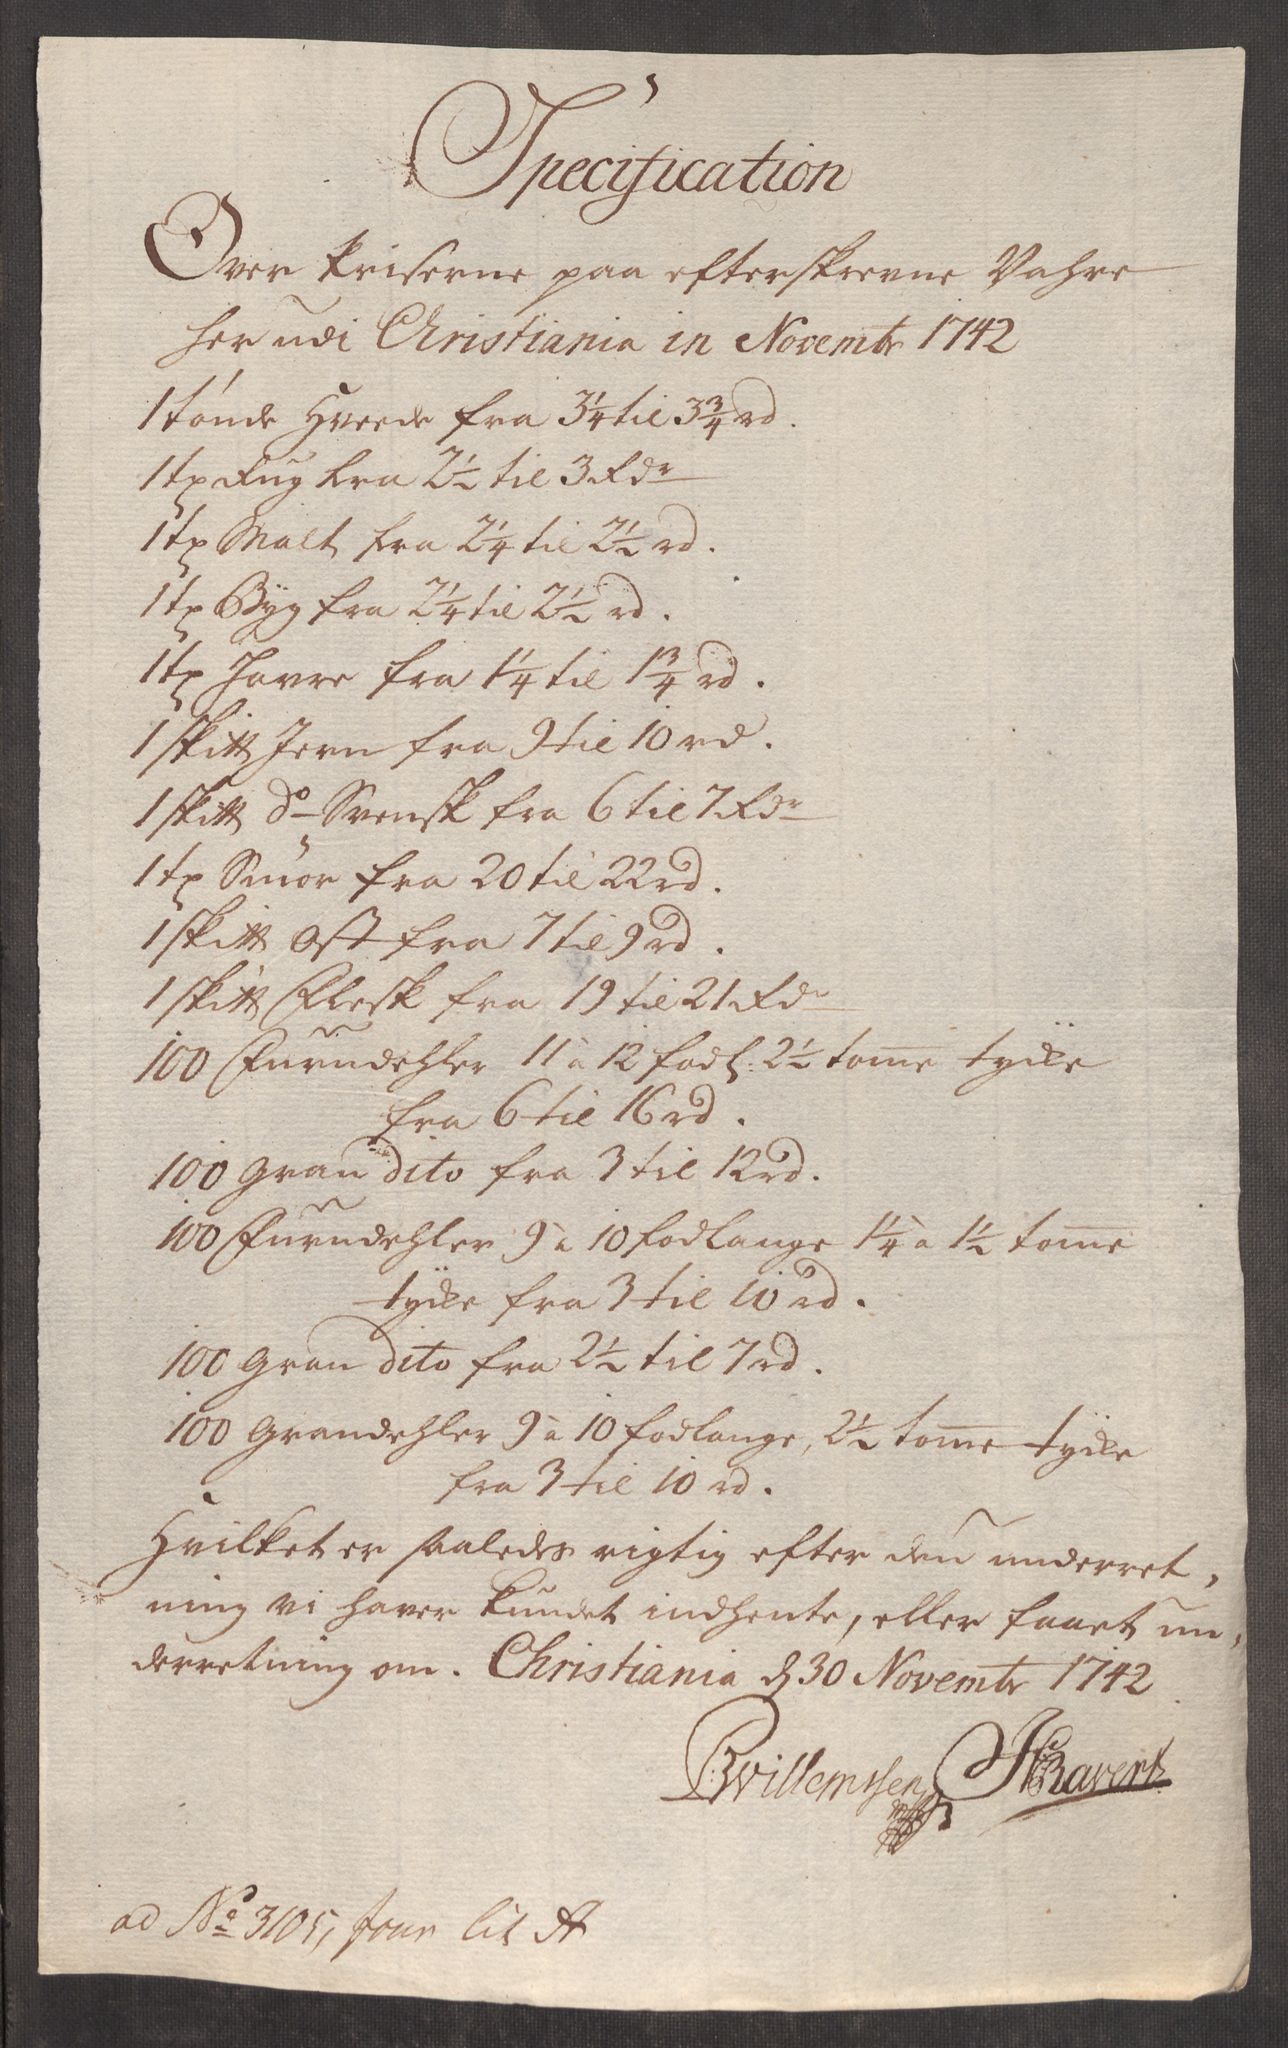 Specification
Over Priserne paa efterskrevne Vahre
her udi Christiania in Novembr 1742
1 tönde Hveede fra 3¼ til 3¾ rd.
1 tp Rug fra 2½ til 3 Rdr
1 tp Malt fra 2¼ til 2½ rd.
1 tp Byg fra 2¼ til 2½ rd.
1 tp Havre fra 1¼ til 1¾ rd.
1 skitt Jern fra 9 til 10 rd.
1 skitt do Svensk fra 6 til 7 Rdr
1 tp Smör fra 20 til 22 rd.
1 skitt Ost fra 7 til 9 rd.
1 skitt Flesk fra 19 til 21 Rdr
100 Furudehler 11 à 12 fodl: 2½ tomme tycke
fra 6 til 16 rd.
100 Gran dito fra 3 til 12 rd.
100 Furudehler 9 à 10 fodlange 1¼ à 1½ tomme
tycke fra 3 til 10 rd.
100 Gran dito fra 2½ til 7 rd.
100 Grandehler 9 à 10 fodlange, 2½ tomme tycke
fra 3 til 10 rd.
Hvilket er saaledes rigtig efter den underret,
ning vi haver kundet indhente, eller faaet un,
derretning om. Christiania d 30 Novembr 1742
Willemssen
ad No 3105, Jour lit A